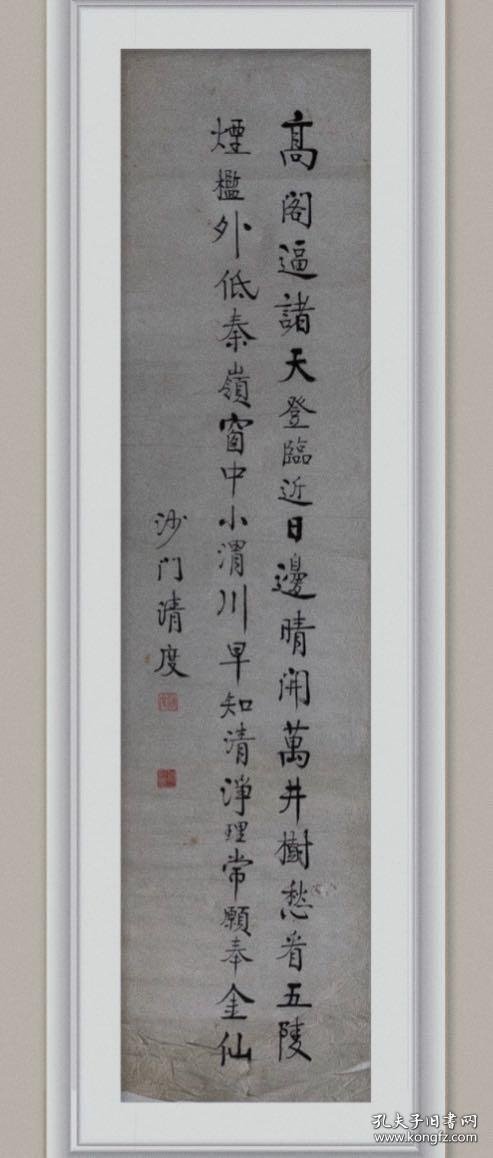 高閣逼諸天登臨近日邊晴開萬井樹愁看五陵
煙檻外低秦嶺窗中小渭川早知清淨理常願奉金仙
沙门清度
孔夫子旧书网
www.kongfz.com